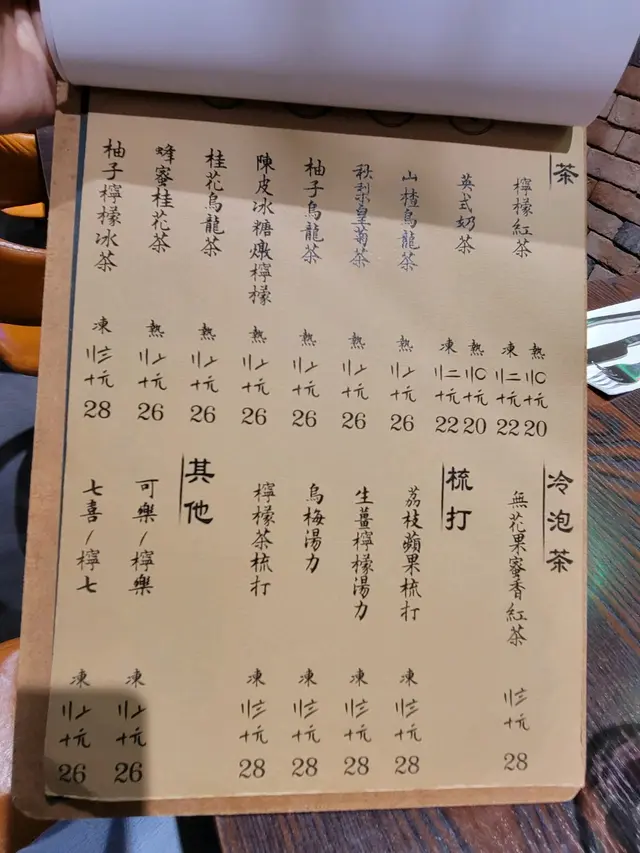 茶
檸檬紅茶
熱
〢〇
十元
20
凍
〢二
十元
22
英式奶茶
熱
〢〇
十元
20
凍
〢二
十元
22
山楂烏龍茶
熱
〢〦
十元
26
秋梨皇菊茶
熱
〢〦
十元
26
柚子烏龍茶
熱
〢〦
十元
26
陳皮冰糖燉檸檬
熱
〢〦
十元
26
桂花烏龍茶
熱
〢〦
十元
26
蜂蜜桂花茶
熱
〢〦
十元
26
柚子檸檬冰茶
凍
〢〨
十元
28
冷泡茶
無花果蜜香紅茶
〢〨
十元
28
梳打
荔枝蘋果梳打
凍
〢〨
十元
28
生薑檸檬湯力
凍
〢〨
十元
28
烏梅湯力
凍
〢〨
十元
28
檸檬茶梳打
凍
〢〨
十元
28
其他
可樂/檸樂
凍
〢〦
十元
26
七喜/檸七
凍
〢〦
十元
26